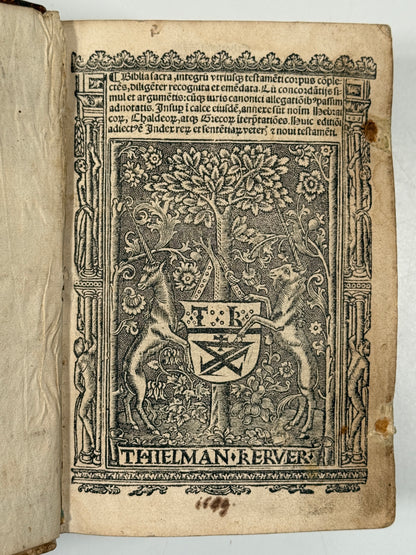 ¶ Biblia sacra, integrū vtriusq; testamēti corpus cōple
ctēs, diligēter recognita et emēdata. Cū concordātijs si
mul et argumētis: cūq; iuris canonici allegatiōib⁹ passim
adnotatis. Insup ī calce eiusdē, annexe sūt noīm Hebrai
corꝝ, Chaldeorꝝ, atq; Grecorꝝ īterp̄tatiões. Huic editiōi
adiect⁹ ē Index rerꝝ et sentētiarꝝ veterꝭ ⁊ noui testamēti.
T · K
THIELMAN · KERVER ·